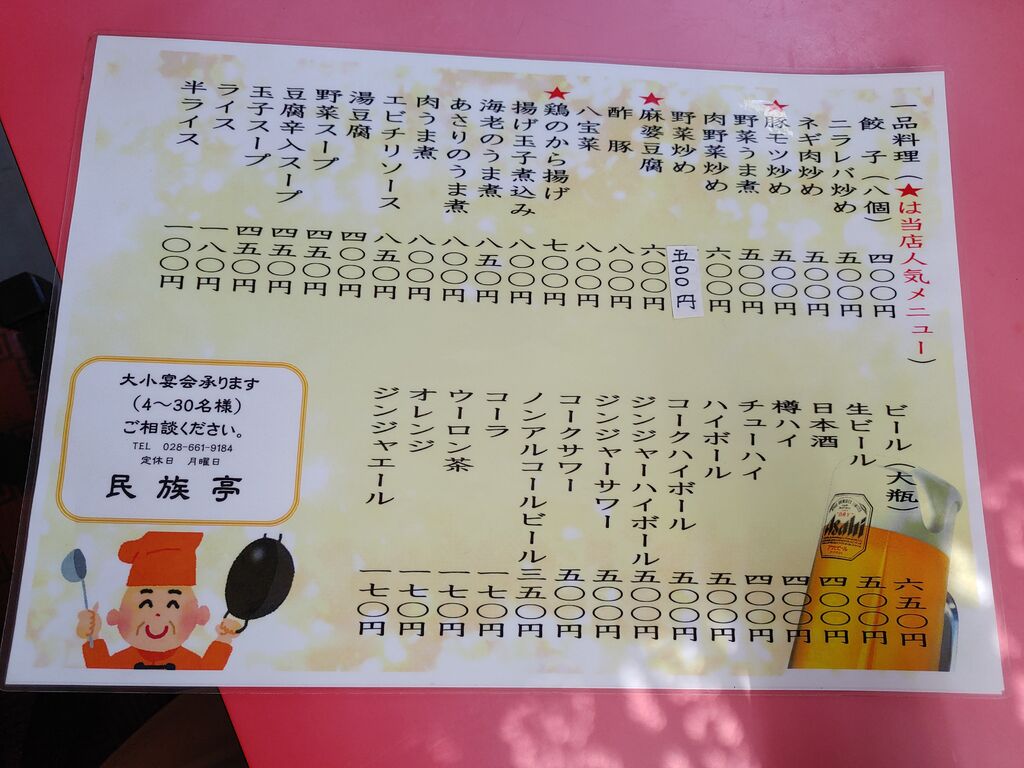 一品料理(★は当店人気メニュー)
餃 子(八個) 四〇〇円
ニラレバ炒め 五〇〇円
ネギ肉炒め 五〇〇円
★豚モツ炒め 五〇〇円
野菜うま煮 五〇〇円
肉野菜炒め 六〇〇円
野菜炒め 五〇〇円
★麻婆豆腐 六〇〇円
酢 豚 八〇〇円
八宝菜 八〇〇円
★鶏のから揚げ 七〇〇円
揚げ玉子煮込み 八〇〇円
海老のうま煮 八五〇円
あさりのうま煮 八〇〇円
肉うま煮 八〇〇円
エビチリソース 八五〇円
湯豆腐 四〇〇円
野菜スープ 四五〇円
豆腐辛入スープ 四五〇円
玉子スープ 四五〇円
ライス 一八〇円
半ライス 一〇〇円
ビール(大瓶) 六五〇円
生ビール 五〇〇円
日本酒 四〇〇円
樽ハイ 四〇〇円
チューハイ 四〇〇円
ハイボール 五〇〇円
コークハイボール 五〇〇円
ジンジャーハイボール 五〇〇円
ジンジャーサワー 五〇〇円
コークサワー 五〇〇円
ノンアルコールビール 三五〇円
コーラ 一七〇円
ウーロン茶 一七〇円
オレンジ 一七〇円
ジンジャエール 一七〇円
Asahi
アサヒビール
大小宴会承ります
(4～30名様)
ご相談ください。
TEL 028-661-9184
定休日 月曜日
民 族 亭